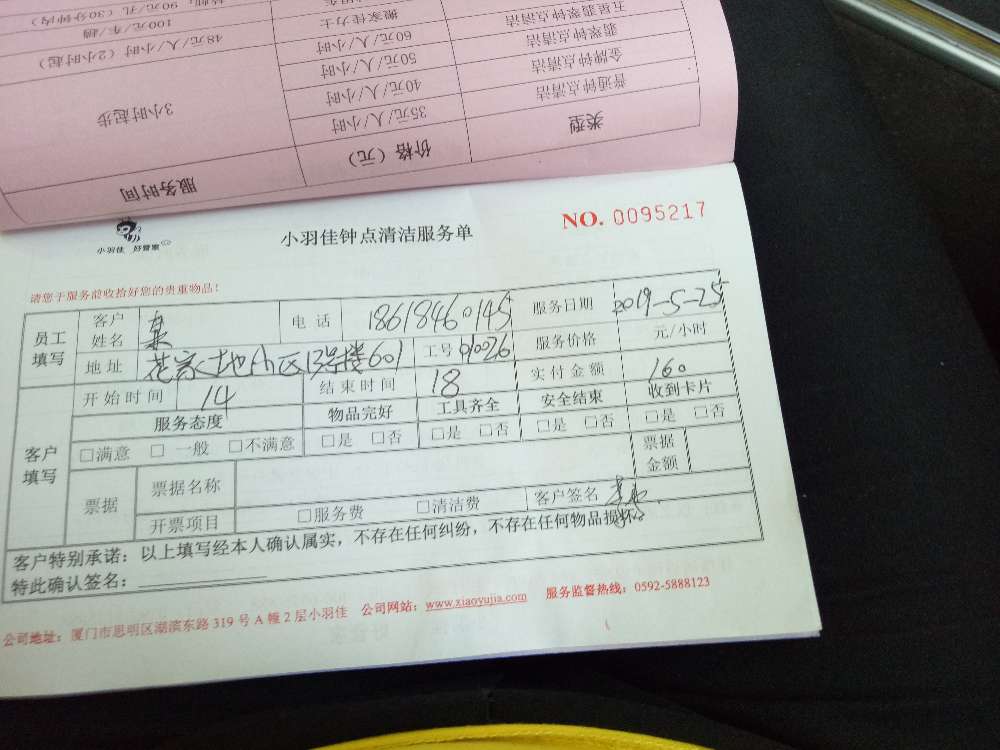 服务时间 价格（元） 类型
3小时起步 35元/人/小时 普通钟点清洁
40元/人/小时 金牌钟点清洁
50元/人/小时 翡翠钟点清洁
48元/人/小时（2小时起） 60元/人/小时 五星翡翠钟点清洁
100元/车/趟 搬家佳力士
90元/孔（30分钟内）
小羽佳 好管家
小羽佳钟点清洁服务单
NO. 0095217
请您于服务前收拾好您的贵重物品！
员工填写 客户姓名 电话 18618460145 服务日期 2019-5-25
地址 花家地小区13号楼601 工号 01026 服务价格 元/小时
开始时间 14 结束时间 18 实付金额 160
客户填写 服务态度 物品完好 工具齐全 安全结束 收到卡片
□满意 □一般 □不满意 □是 □否 □是 □否 □是 □否 □是 □否
票据 票据名称 票据金额
开票项目 □服务费 □清洁费 客户签名
客户特别承诺：以上填写经本人确认属实，不存在任何纠纷，不存在任何物品损坏。
特此确认签名：
公司地址：厦门市思明区湖滨东路319号A幢2层小羽佳 公司网站：www.xiaoyujia.com 服务监督热线：0592-5888123